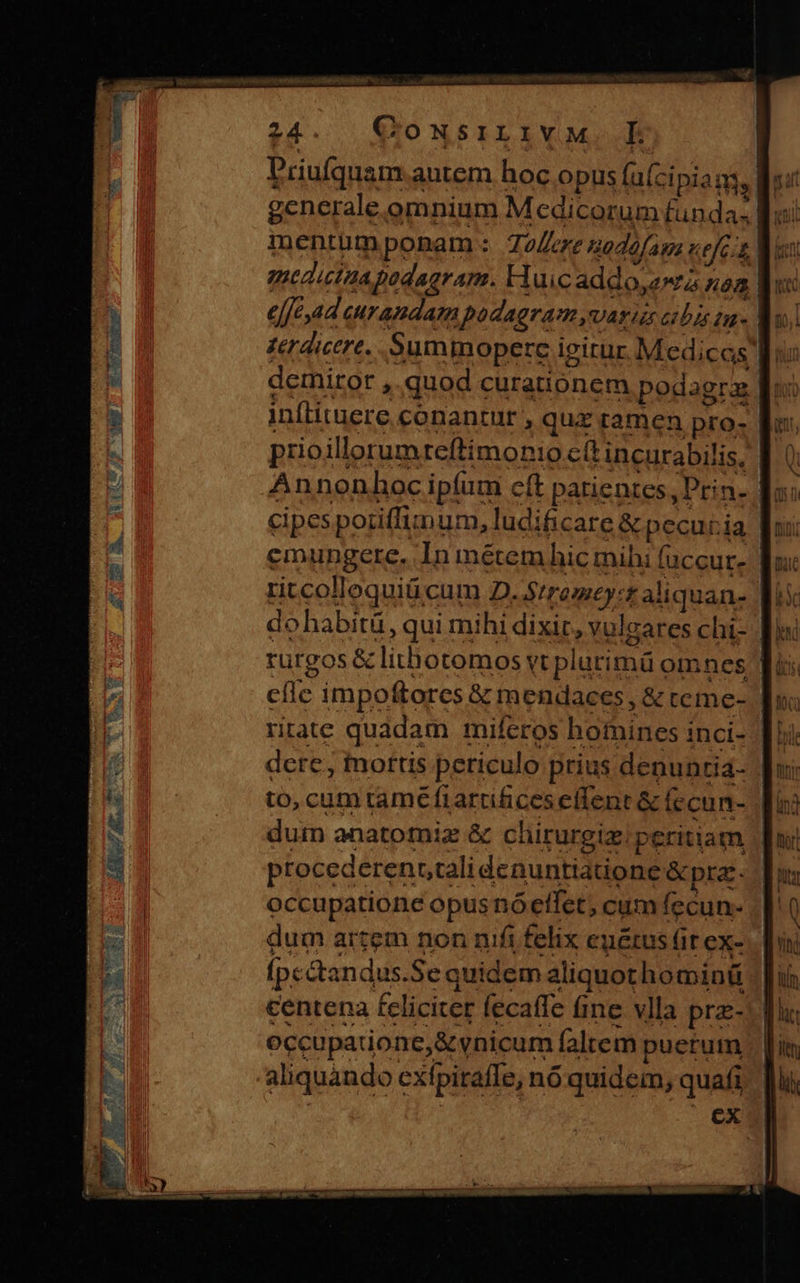 24. CONSILIVM I.
Priuſquam autem hoc opus ſuſcipiam,
generale omnium Medicorum funda-
mentum ponam: Tollere nodoſam neſcit
medicina podagram. Huic addo, artis non
eſſe, ad curandam podagram, variis cibis in-
terdicere. Summopere igitur Medicos
demiror, quod curationem podagræ
inſtituere conantur, quæ tamen pro-
prio illorum teſtimonio eſt incurabilis.
Annon hoc ipſum eſt patientes, Prin-
cipes potiſſimum, ludificare & pecunia
emungere. In mētem hic mihi ſuccur-
rit colloquiū cum D. aliquan-
do habitū, qui mihi dixit, vulgares chi-
rurgos & lithotomos vt plurimū omnes
eſſe impoſtores & mendaces, & teme-
ritate quadam miſeros homines inci-
dere, mortis periculo prius denuntia-
to, cum tamē ſi artifices eſſent & ſecun-
dum anatomiæ & chirurgiæ peritiam
procederent, tali denuntiatione & præ-
occupatione opus nō eſſet, cum ſecun-
dum artem non niſi felix euētus ſit ex-
ſpectandus. Se quidem aliquot hominū
centena feliciter ſecaſſe ſine vlla præ-
occupatione, & vnicum ſaltem puerum
aliquando exſpiraſſe, nō quidem, quaſi
ex